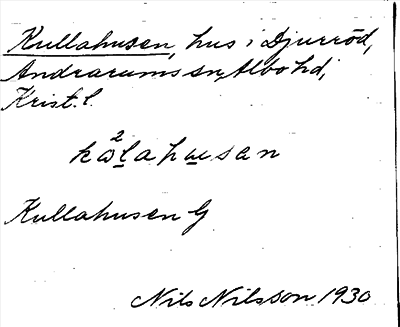 Kullahusen, hus i Djurröd,
Andrarums sn, Albo hd,
Krist. l.
Kullahusen G
Nils Nilsson 1930